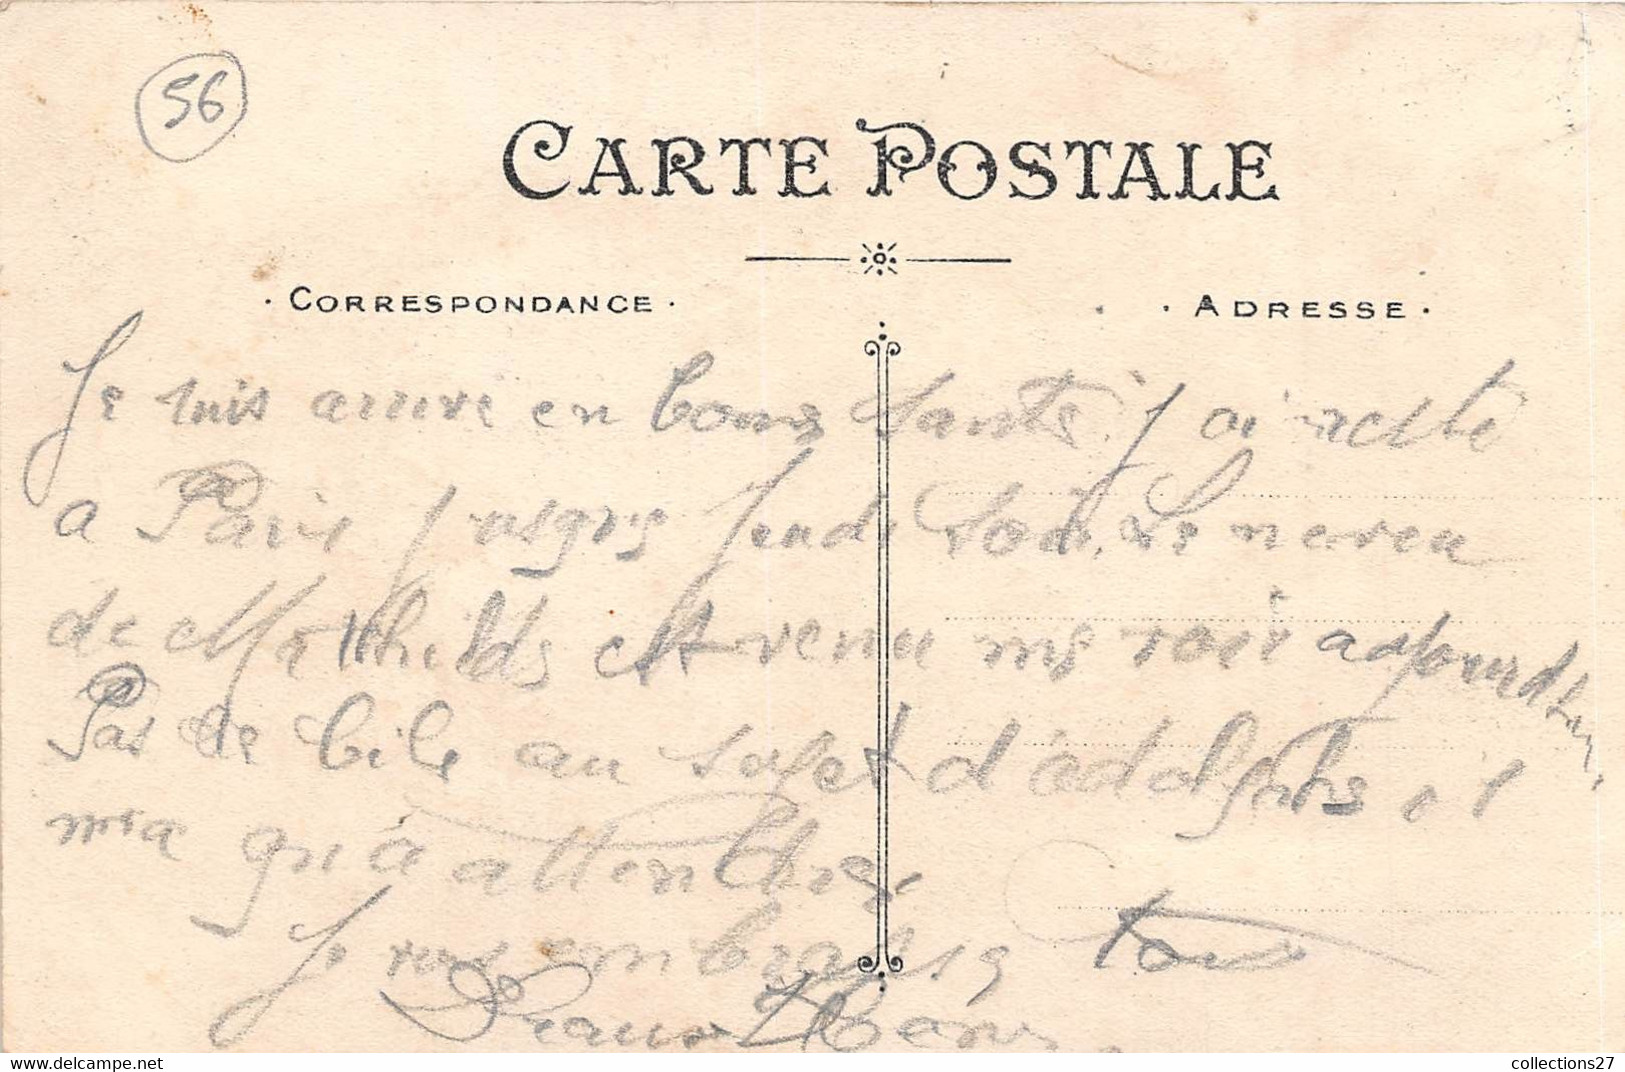 56
CARTE POSTALE
· CORRESPONDANCE ·
· ADRESSE ·
Je suis arrivé en bonne santé. j'ai resté
a Paris jusque Jeudi soir. Le neveu
de Mathilde est venu me voir
Pas de bile au sujet d'adolphe il
qu'à attendre
Je vous embrasse tous
collections27